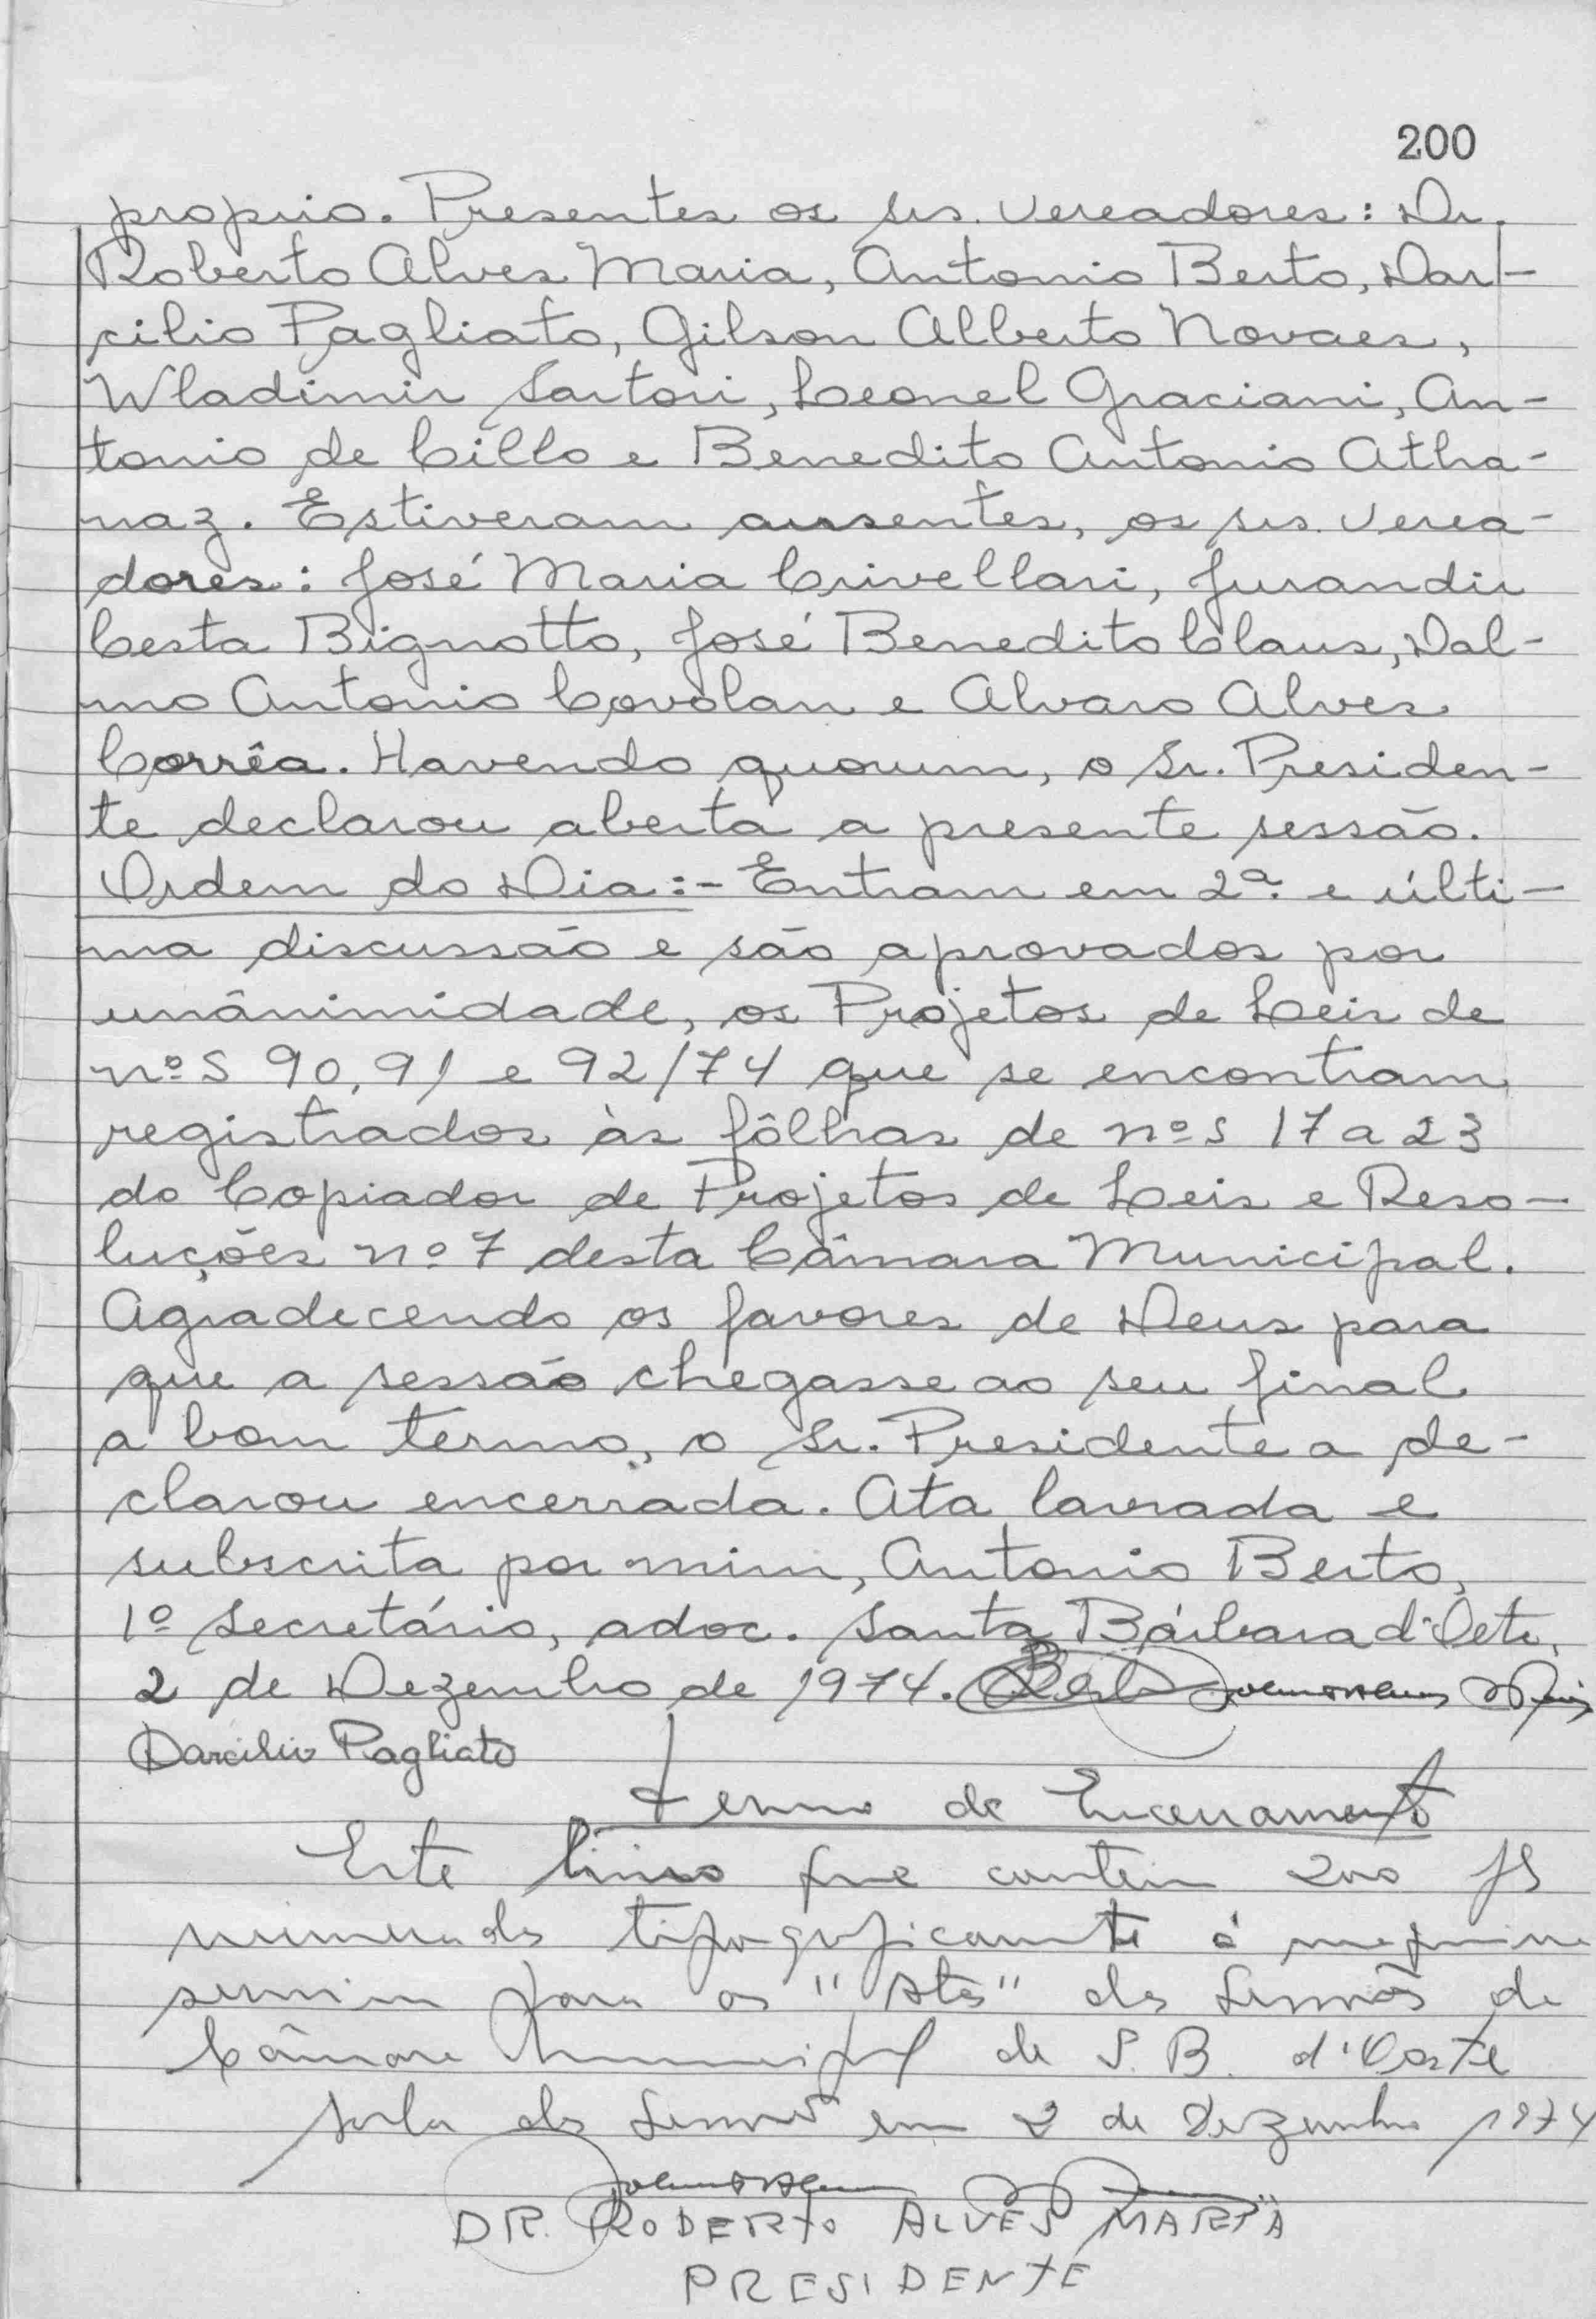 200
proprio. Presentes os srs. vereadores: Dr.
Roberto Alves Maria, Antonio Berto, Dar-
cilio Pagliato, Gilson Alberto Novaes,
Wladimir Sartori, Leonel Graciani, An-
tonio de Cillo e Benedito Antonio Atha-
naz. Estiveram ausentes, os srs. verea-
dores: José Maria Crivellari, Jurandir
Cesta Bignotto, José Benedito Claus, Dal-
mo Antonio Covolan e Alvaro Alves
Corrêa. Havendo quorum, o Sr. Presiden-
te declarou aberta a presente sessão.
Ordem do Dia:- Entram em 2ª. e últi-
ma discussão e são aprovados por
unânimidade, os Projetos de Leis de
nºs 90, 91 e 92/74 que se encontram
registrados às fôlhas de nºs 17 a 23
do Copiador de Projetos de Leis e Reso-
luções nº 7 desta Câmara Municipal.
Agradecendo os favores de Deus para
que a sessão chegasse ao seu final
a bom termo, o Sr. Presidente a de-
clarou encerrada. Ata lavrada e
subscrita por mim, Antonio Berto,
1º Secretário, adoc. Santa Bárbara d'Oeste,
2 de Dezembro de 1974.
Darcilio Pagliato
Termo de Encerramento
Este livro que contem 200 fls
numeradas tipograficamente à maquina
serviu para as "Atas" das Sessões da
Câmara Municipal de S. B. d'Oeste
Sala das Sessões em 2 de Dezembro 1974
DR. ROBERTO ALVES MARIA
PRESIDENTE